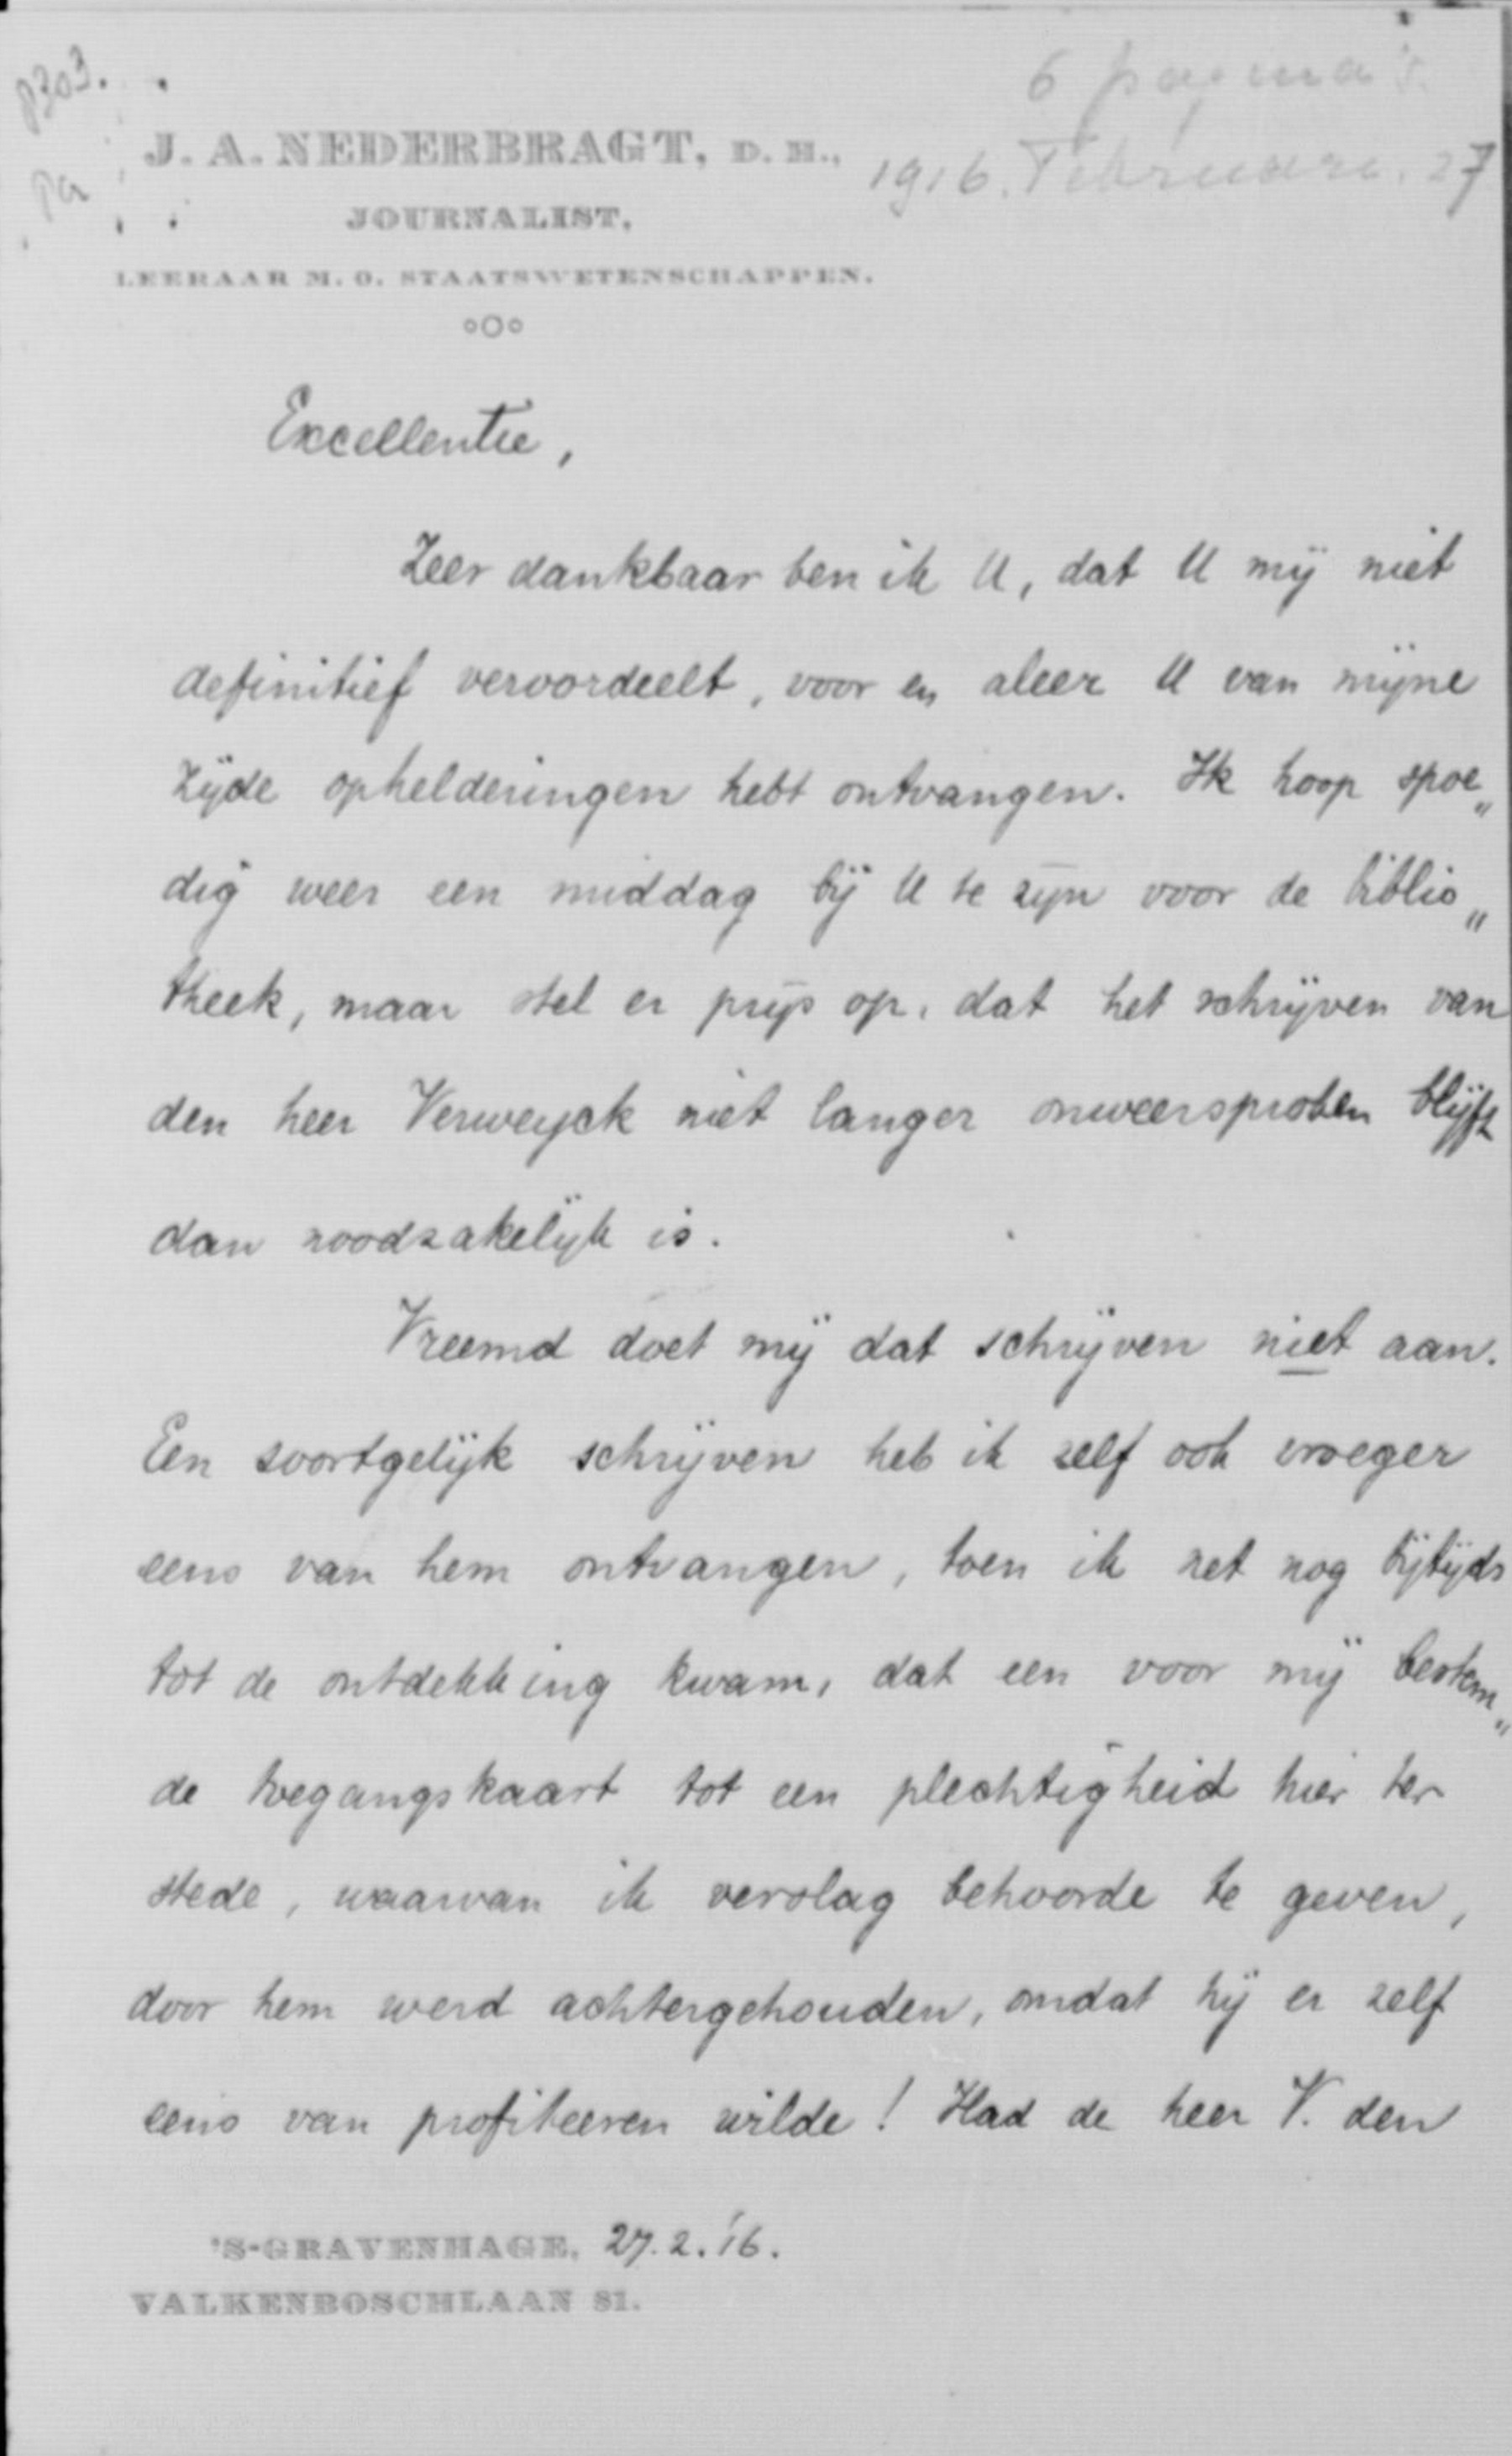 p303.
6 pagina's.
J. A. NEDERBRAGT, D. H.,
1916. Februari. 27
Pa
JOURNALIST,
LEERAAR M. O. STAATSWETENSCHAPPEN.
Excellentie,
Zeer dankbaar ben ik U, dat U mij niet
definitief veroordeelt, voor en aleer U van mijne
zijde ophelderingen hebt ontvangen. Ik hoop spoe„
dig weer een middag bij U te zijn voor de biblio„
theek, maar stel er prijs op, dat het schrijven van
den heer Verweyck niet langer onweersproken blijft
dan noodzakelijk is.
Vreemd doet mij dat schrijven niet aan.
Een soortgelijk schrijven heb ik zelf ook vroeger
eens van hem ontvangen, toen ik net nog bijtijds
tot de ontdekking kwam, dat een voor mij bestem„
de toegangskaart tot een plechtigheid hier ter
stede, waarvan ik verslag behoorde te geven,
door hem werd achtergehouden, omdat hij er zelf
eens van profiteeren wilde! Had de heer V. den
'S-GRAVENHAGE, 27.2.'16.
VALKENBOSCHLAAN 81.